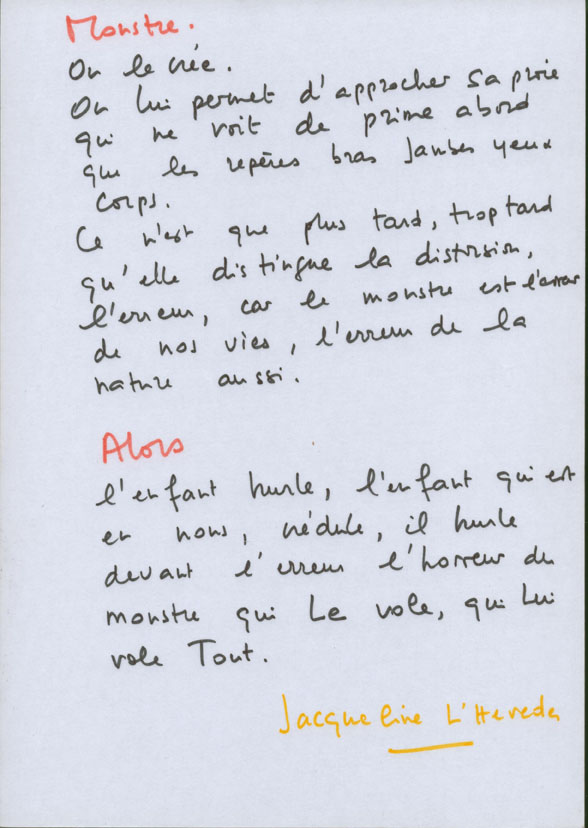 Monstre.
On le crée.
On lui permet d'approcher sa proie
qui ne voit de prime abord
que les repères bras jambes yeux
corps.
Ce n'est que plus tard, trop tard
qu'elle distingue la distorsion,
l'erreur, car le monstre est l'erreur
de nos vies, l'erreur de la
nature aussi.
Alors
l'enfant hurle, l'enfant qui est
en nous, crédule, il hurle
devant l'erreur l'horreur du
monstre qui Le vole, qui Lui
vole Tout.
Jacqueline L'Hévéder